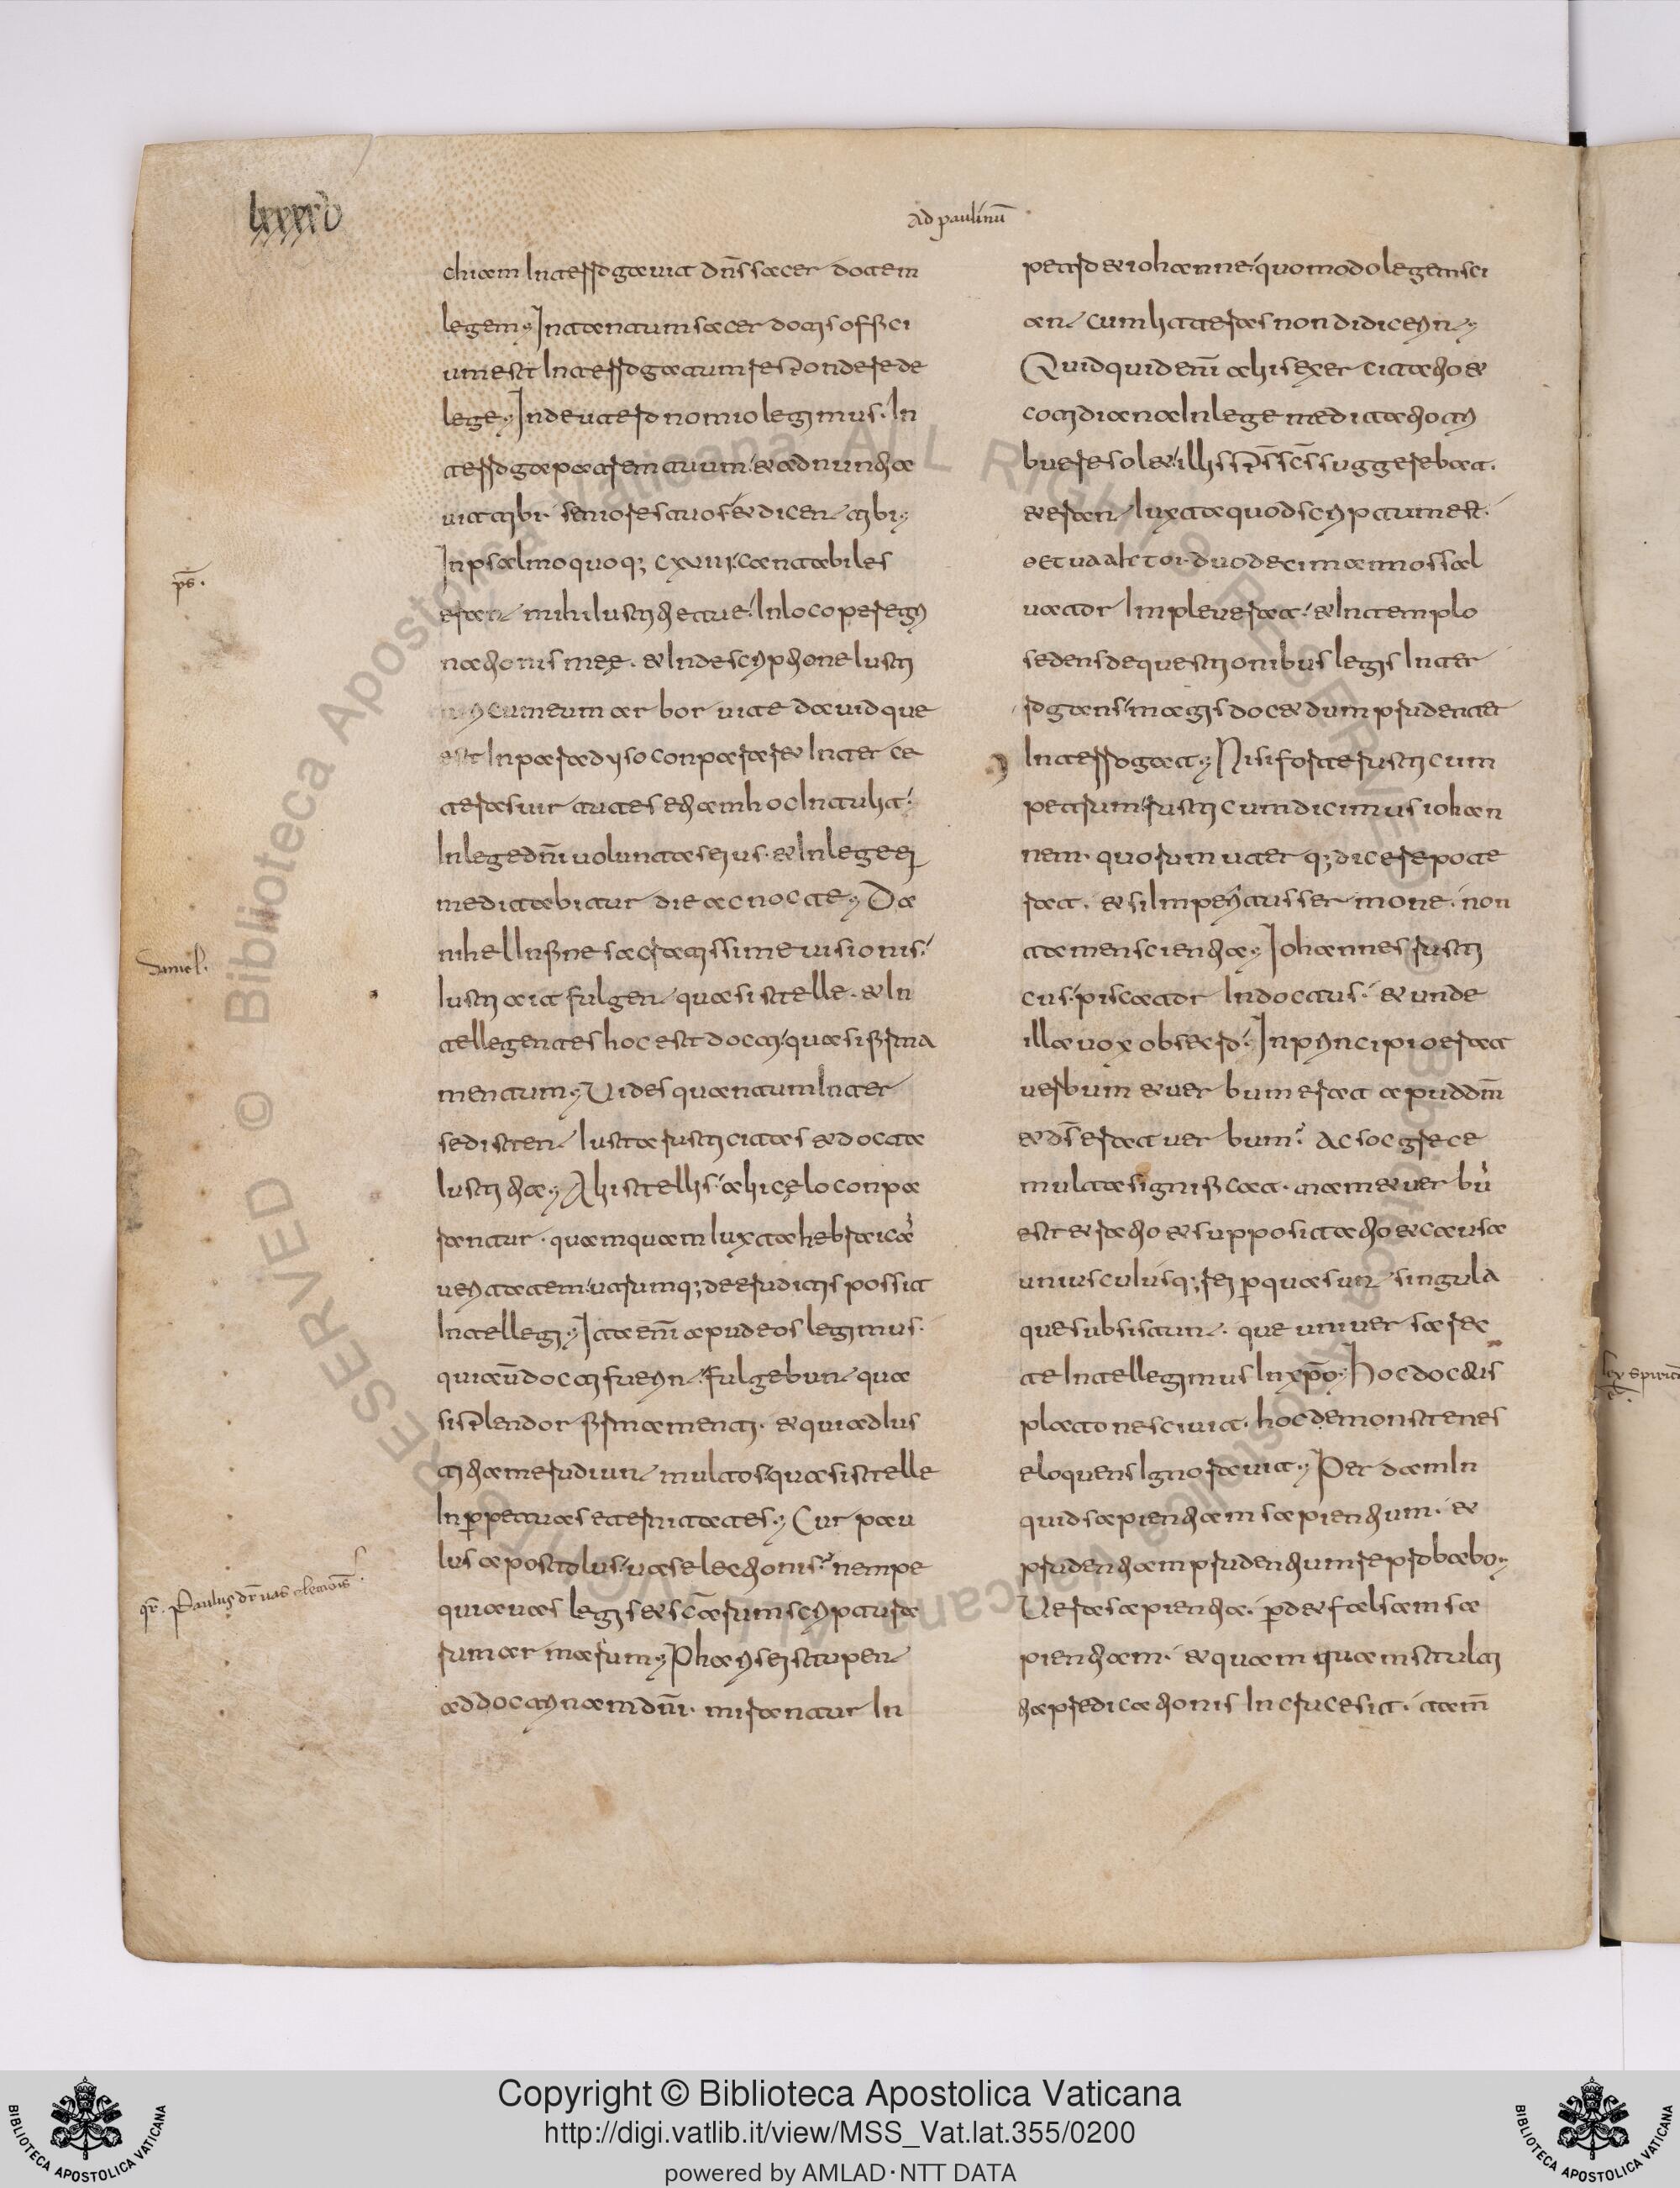 lxxxxv
Ad paulinū
chiam Interrogavit dn̄s sacerdotem
legem; In tantum sacerdotis offici
um est Interrogatum respondere de
lege; In deuteronomio legimus. In
terroga patrem tuum. et adnuntia
vit tibi. seniores tuos. et dicent tibi;
In psalmo quoq; cxviii. cantabiles
erant mihi Iustitie tue. In loco peregri
nationis mee. et In descriptione Iusti
viri cum eum arbori vite david que
est In paradyso conpararet Inter ce
teras virtutes etiam hoc Intulit.
In lege dn̄i voluntas eius. et In lege ei
meditabitur die ac nocte; Da
nihel In fine sacratissime visionis.
Iustia ait fulgent quasi stelle. et In
tellegentes hoc est docti. quasi firma
mentum; Vides quantum Inter
se distent Iusta rusticitas et docta
Iustitia; Alii stellis. alii cęlo conpa
rantur. quamquam Iuxta hebraicā
veritatem. utrumq; de eruditis possit
Intellegi; Ita eni apud eos legimus.
qui aū docti fuerint fulgebunt qua
si splendor firmamenti. et qui ad Ius
titiam erudiunt multos quasi stelle
In perpetuas eternitates; Cur pau
lus apostolus. vas electionis. nempe
quia vas legis et scārum scriptura
rum armarum; Pharisei stupent
ad doctrinam dn̄i. mirantur In
petro et iohanne. quomodo legem sci
ant cum litteras non didicerint;
Quidquid enī aliis exercitatio et
cotidiana In lege meditatio tri
buere solet. illis sp̄s sc̄s suggerebat.
et erant Iuxta quod scriptum est.
oet uaaletoi. duodecim annos sal
vator Impleverat. et In templo
sedens de questionibus legis Inter
rogans. magis docet dum prudenter
Interrogat; Nisi forte rusticum
petrum. rusticum dicimus iohan
nem. quorum uterq; dicere pote
rat. et si Imperitus sermone. non
tamen scientia; Iohannes rusti
cus. piscator Indoctus. et unde
illa vox obsecro. In principio erat
verbum et verbum erat apud dm̄
et ds̄ erat verbum? Ac soc grece
multa significat. nam et verbū
est et ratio et supposita tio et causa
uniusculusq; rei p quas sunt singula
que subsistunt. que univer sa rec
te Intellegimus In xp̄o; Hoc doctus
plato nescivit. hoc demonstenes
eloquens Ignoravit; Perdam In
quid sapientiam sapientium. et
prudentiam prudentium reprobabo;
Vera sapientia. perdet falsam sa
pientiam. et quam quam stulti
tia predicationis In cruce sit. tam̄
ps̄.
Daniel.
qr̄. Paulus dr̄ vas electiōis.